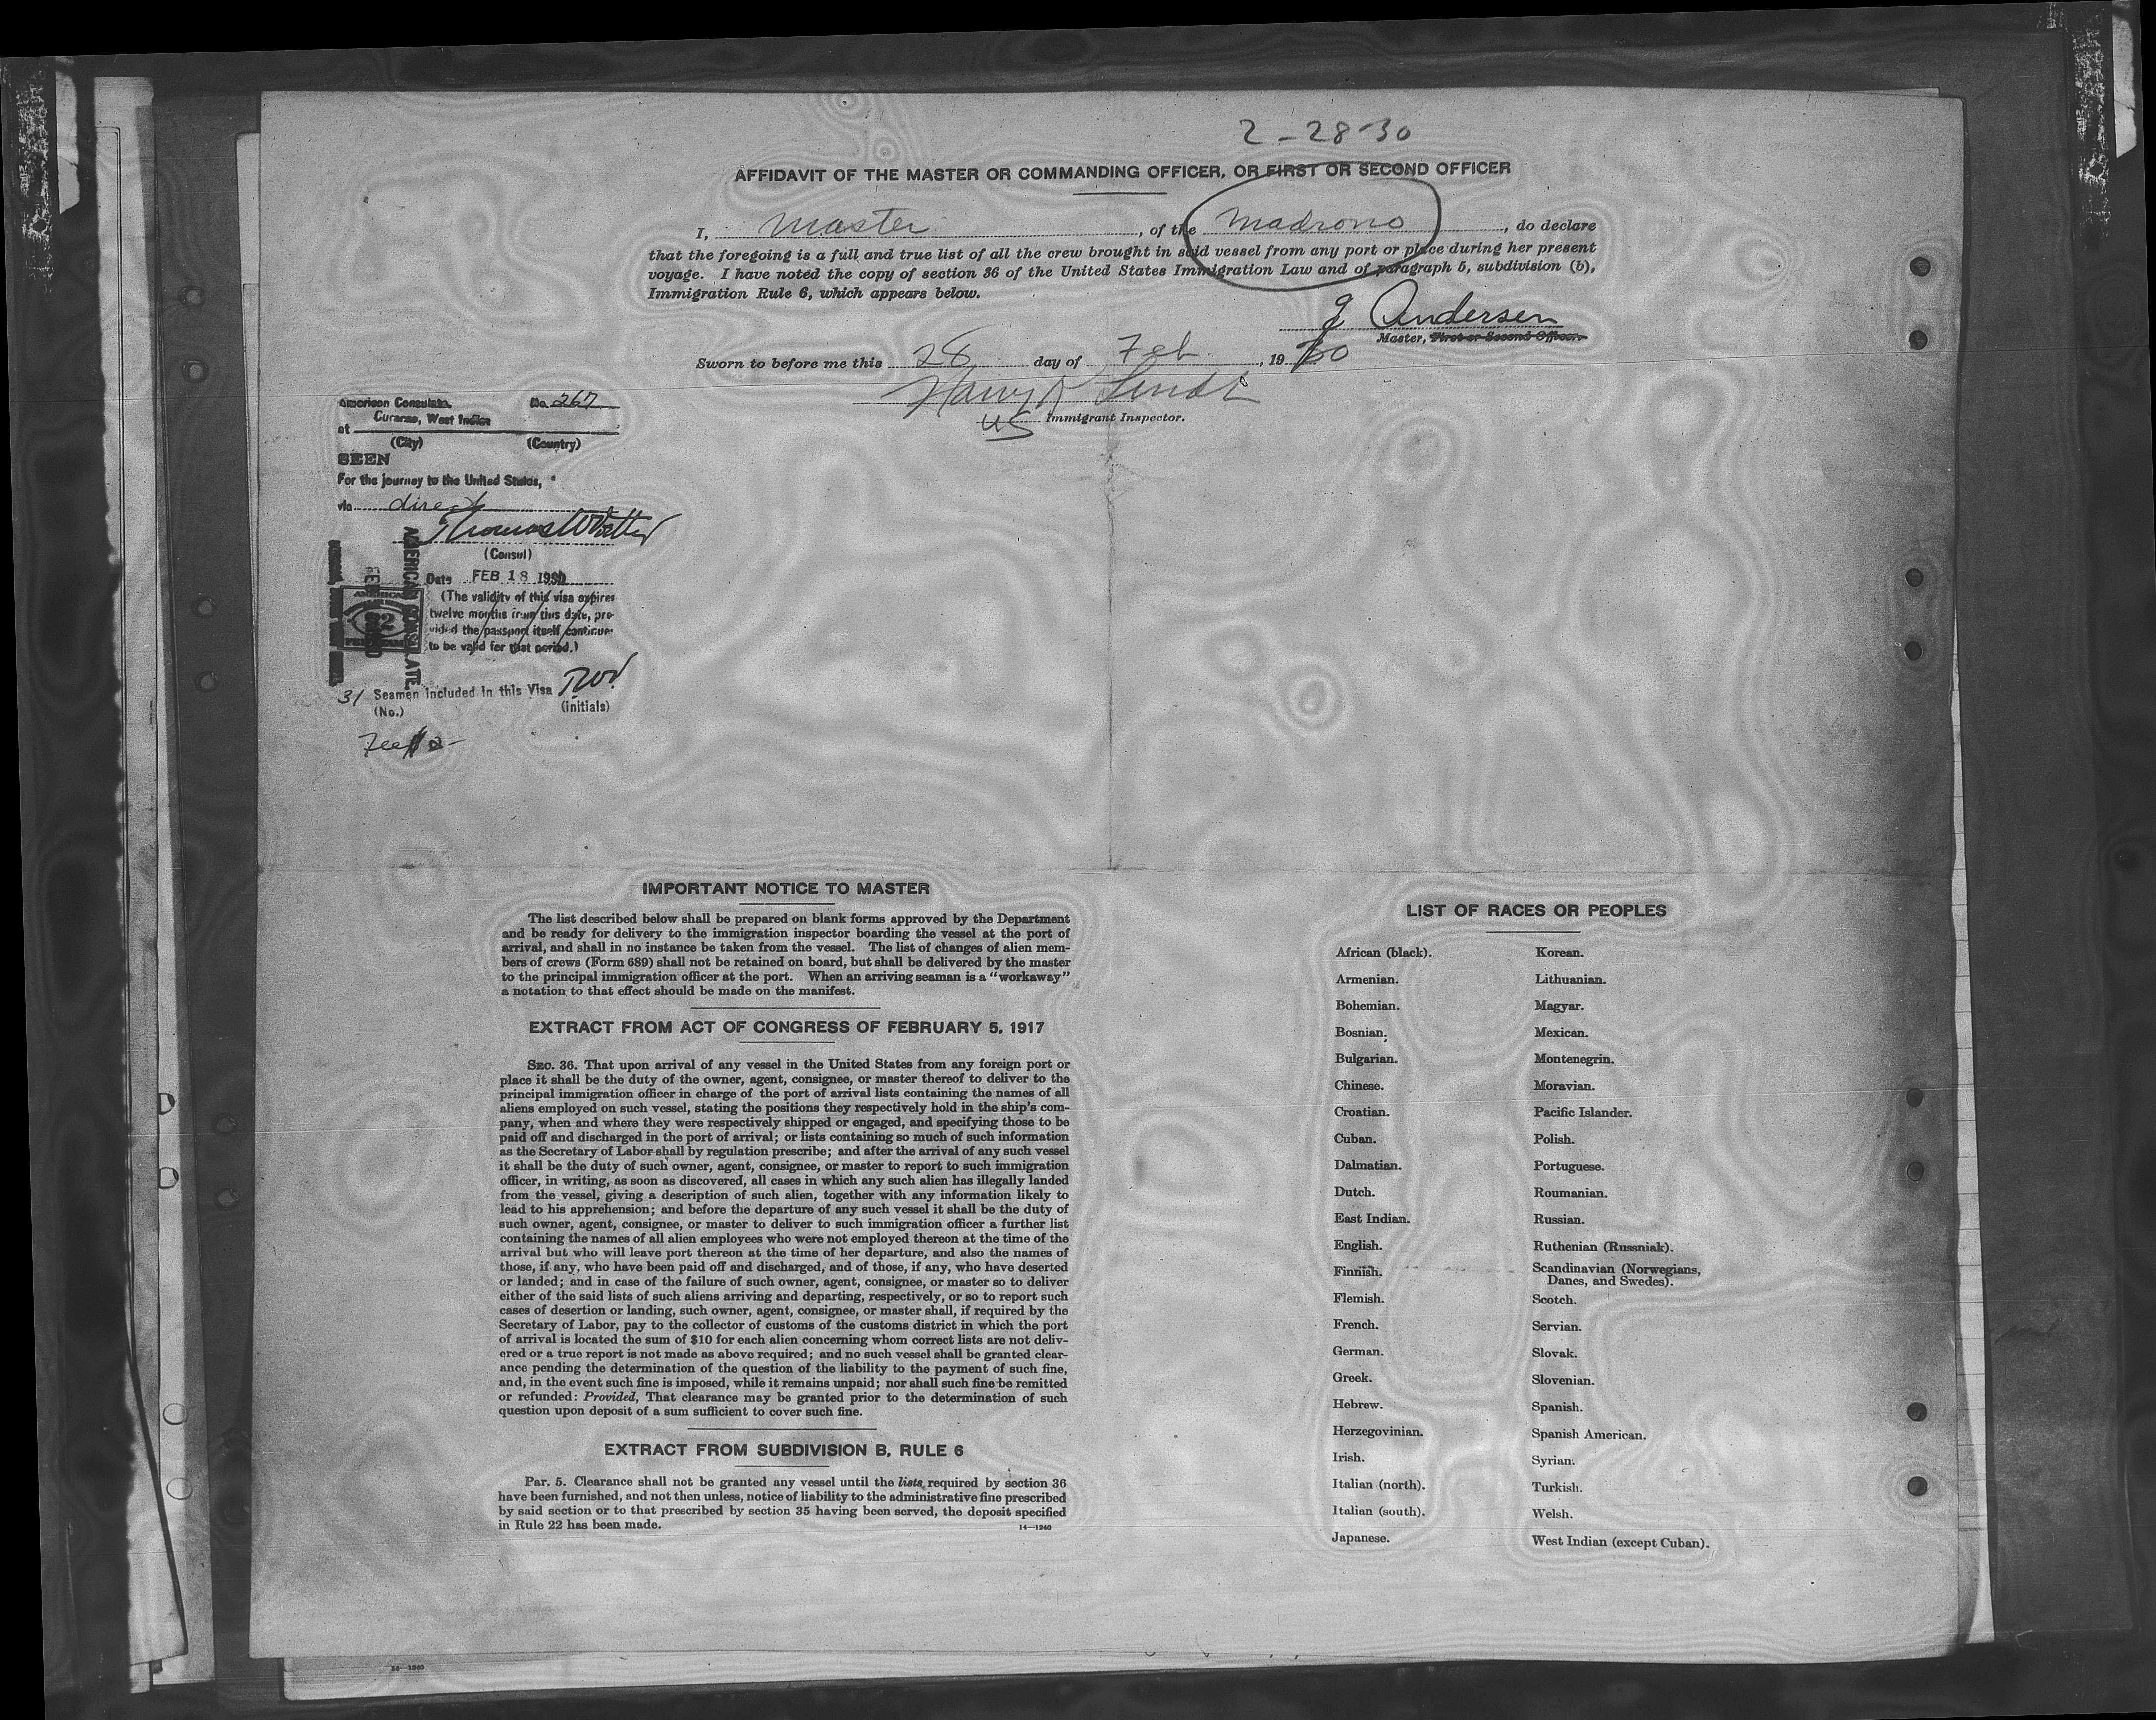 2-28-30
AFFIDAVIT OF THE MASTER OR COMMANDING OFFICER, OR FIRST OR SECOND OFFICER
I, Master, of the Madrono, do declare
that the foregoing is a full and true list of all the crew brought in said vessel from any port or place during her present
voyage. I have noted the copy of section 36 of the United States Immigration Law and of paragraph 5, subdivision (b),
Immigration Rule 6, which appears below.
J Andersen
Master, First or Second Officer.
Sworn to before me this 28 day of Feb., 1930
Harry
US Immigrant Inspector.
American Consulate, No. 267
at Curacao, West Indies
(City) (Country)
SEEN
For the journey to the United States,
via direct
(Consul)
Date FEB 18 1930
(The validity of this visa expires
twelve months from this date, pro-
vided the passport itself continues
to be valid for that period.)
AMERICAN CONSULATE
31 Seamen included in this Visa
(No.) (initials)
Fee $2-
IMPORTANT NOTICE TO MASTER
The list described below shall be prepared on blank forms approved by the Department
and be ready for delivery to the immigration inspector boarding the vessel at the port of
arrival, and shall in no instance be taken from the vessel. The list of changes of alien mem-
bers of crews (Form 689) shall not be retained on board, but shall be delivered by the master
to the principal immigration officer at the port. When an arriving seaman is a "workaway"
a notation to that effect should be made on the manifest.
EXTRACT FROM ACT OF CONGRESS OF FEBRUARY 5, 1917
SEC. 36. That upon arrival of any vessel in the United States from any foreign port or
place it shall be the duty of the owner, agent, consignee, or master thereof to deliver to the
principal immigration officer in charge of the port of arrival lists containing the names of all
aliens employed on such vessel, stating the positions they respectively hold in the ship's com-
pany, when and where they were respectively shipped or engaged, and specifying those to be
paid off and discharged in the port of arrival; or lists containing so much of such information
as the Secretary of Labor shall by regulation prescribe; and after the arrival of any such vessel
it shall be the duty of such owner, agent, consignee, or master to report to such immigration
officer, in writing, as soon as discovered, all cases in which any such alien has illegally landed
from the vessel, giving a description of such alien, together with any information likely to
lead to his apprehension; and before the departure of any such vessel it shall be the duty of
such owner, agent, consignee, or master to deliver to such immigration officer a further list
containing the names of all alien employees who were not employed thereon at the time of the
arrival but who will leave port thereon at the time of her departure, and also the names of
those, if any, who have been paid off and discharged, and of those, if any, who have deserted
or landed; and in case of the failure of such owner, agent, consignee, or master so to deliver
either of the said lists of such aliens arriving and departing, respectively, or so to report such
cases of desertion or landing, such owner, agent, consignee, or master shall, if required by the
Secretary of Labor, pay to the collector of customs of the customs district in which the port
of arrival is located the sum of $10 for each alien concerning whom correct lists are not deliv-
ered or a true report is not made as above required; and no such vessel shall be granted clear-
ance pending the determination of the question of the liability to the payment of such fine,
and, in the event such fine is imposed, while it remains unpaid; nor shall such fine be remitted
or refunded: Provided, That clearance may be granted prior to the determination of such
question upon deposit of a sum sufficient to cover such fine.
EXTRACT FROM SUBDIVISION B, RULE 6
Par. 5. Clearance shall not be granted any vessel until the lists required by section 36
have been furnished, and not then unless, notice of liability to the administrative fine prescribed
by said section or to that prescribed by section 35 having been served, the deposit specified
in Rule 22 has been made.
14—1240
LIST OF RACES OR PEOPLES
African (black).
Armenian.
Bohemian.
Bosnian.
Bulgarian.
Chinese.
Croatian.
Cuban.
Dalmatian.
Dutch.
East Indian.
English.
Finnish.
Flemish.
French.
German.
Greek.
Hebrew.
Herzegovinian.
Irish.
Italian (north).
Italian (south).
Japanese.
Korean.
Lithuanian.
Magyar.
Mexican.
Montenegrin.
Moravian.
Pacific Islander.
Polish.
Portuguese.
Roumanian.
Russian.
Ruthenian (Russniak).
Scandinavian (Norwegians,
Danes, and Swedes).
Scotch.
Servian.
Slovak.
Slovenian.
Spanish.
Spanish American.
Syrian.
Turkish.
Welsh.
West Indian (except Cuban).
14—1240